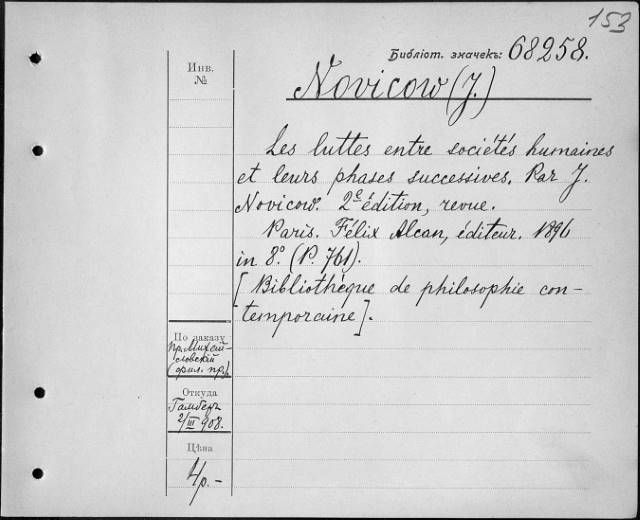 153
Библіот. значекъ: 68258.
Инв.
№
Novicow (J.)
Les luttes entre sociétés humaines
et leurs phases successives. Par J.
Novicow. 2e édition, revue.
Paris. Félix Alcan, éditeur. 1896
in 8°. (P. 761).
[Bibliothèque de philosophie con-
temporaine].
По заказу
пр. Михай-
ловскій
(фил. пр.)
Откуда
2/III 908.
Цѣна
4р.-